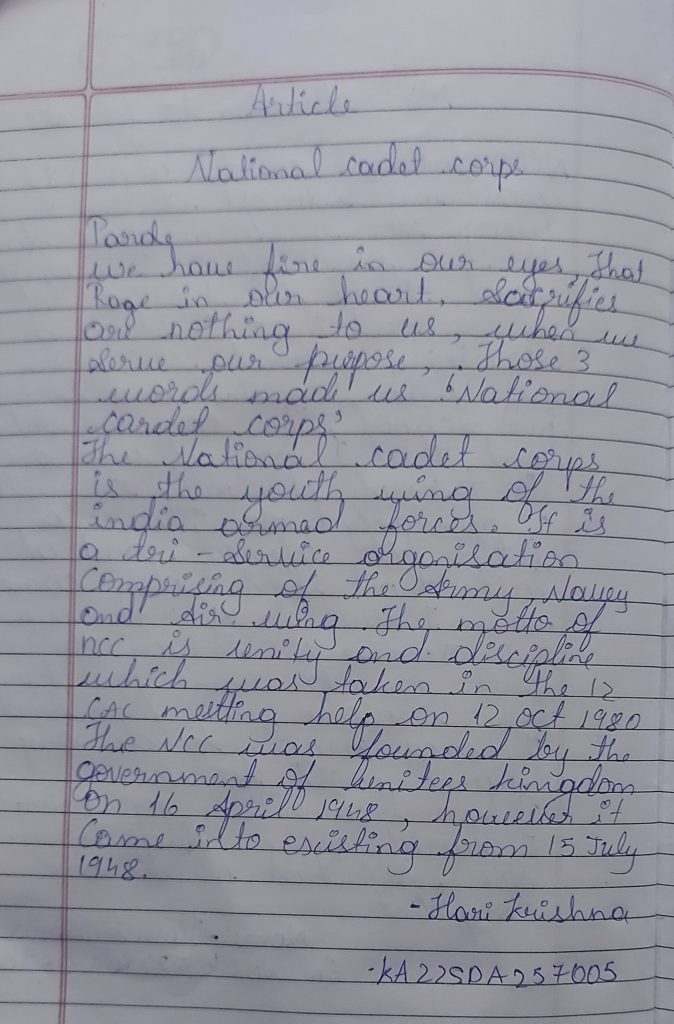 Article
National cadet corps
Parde
we have fire in our eyes, That
Rage in our heart, Sacrifies
are nothing to us, when we
serve our purpose, . Those 3
words made us 'National
cardet corps'
The National cadet corps
is the youth wing of the
india armed forces. It is
a tri - service organisation
Comprising of the Army, Navey
and Air wing. The motto of
ncc is unity and discipline
which was taken in the 12
CAC meeting help on 12 oct 1980
The NCC was founded by the
government of unitees kingdom
On 16 April 1948, however it
Came into existing from 15 July
1948.
- Hari Krishna
- KA22SDA257005